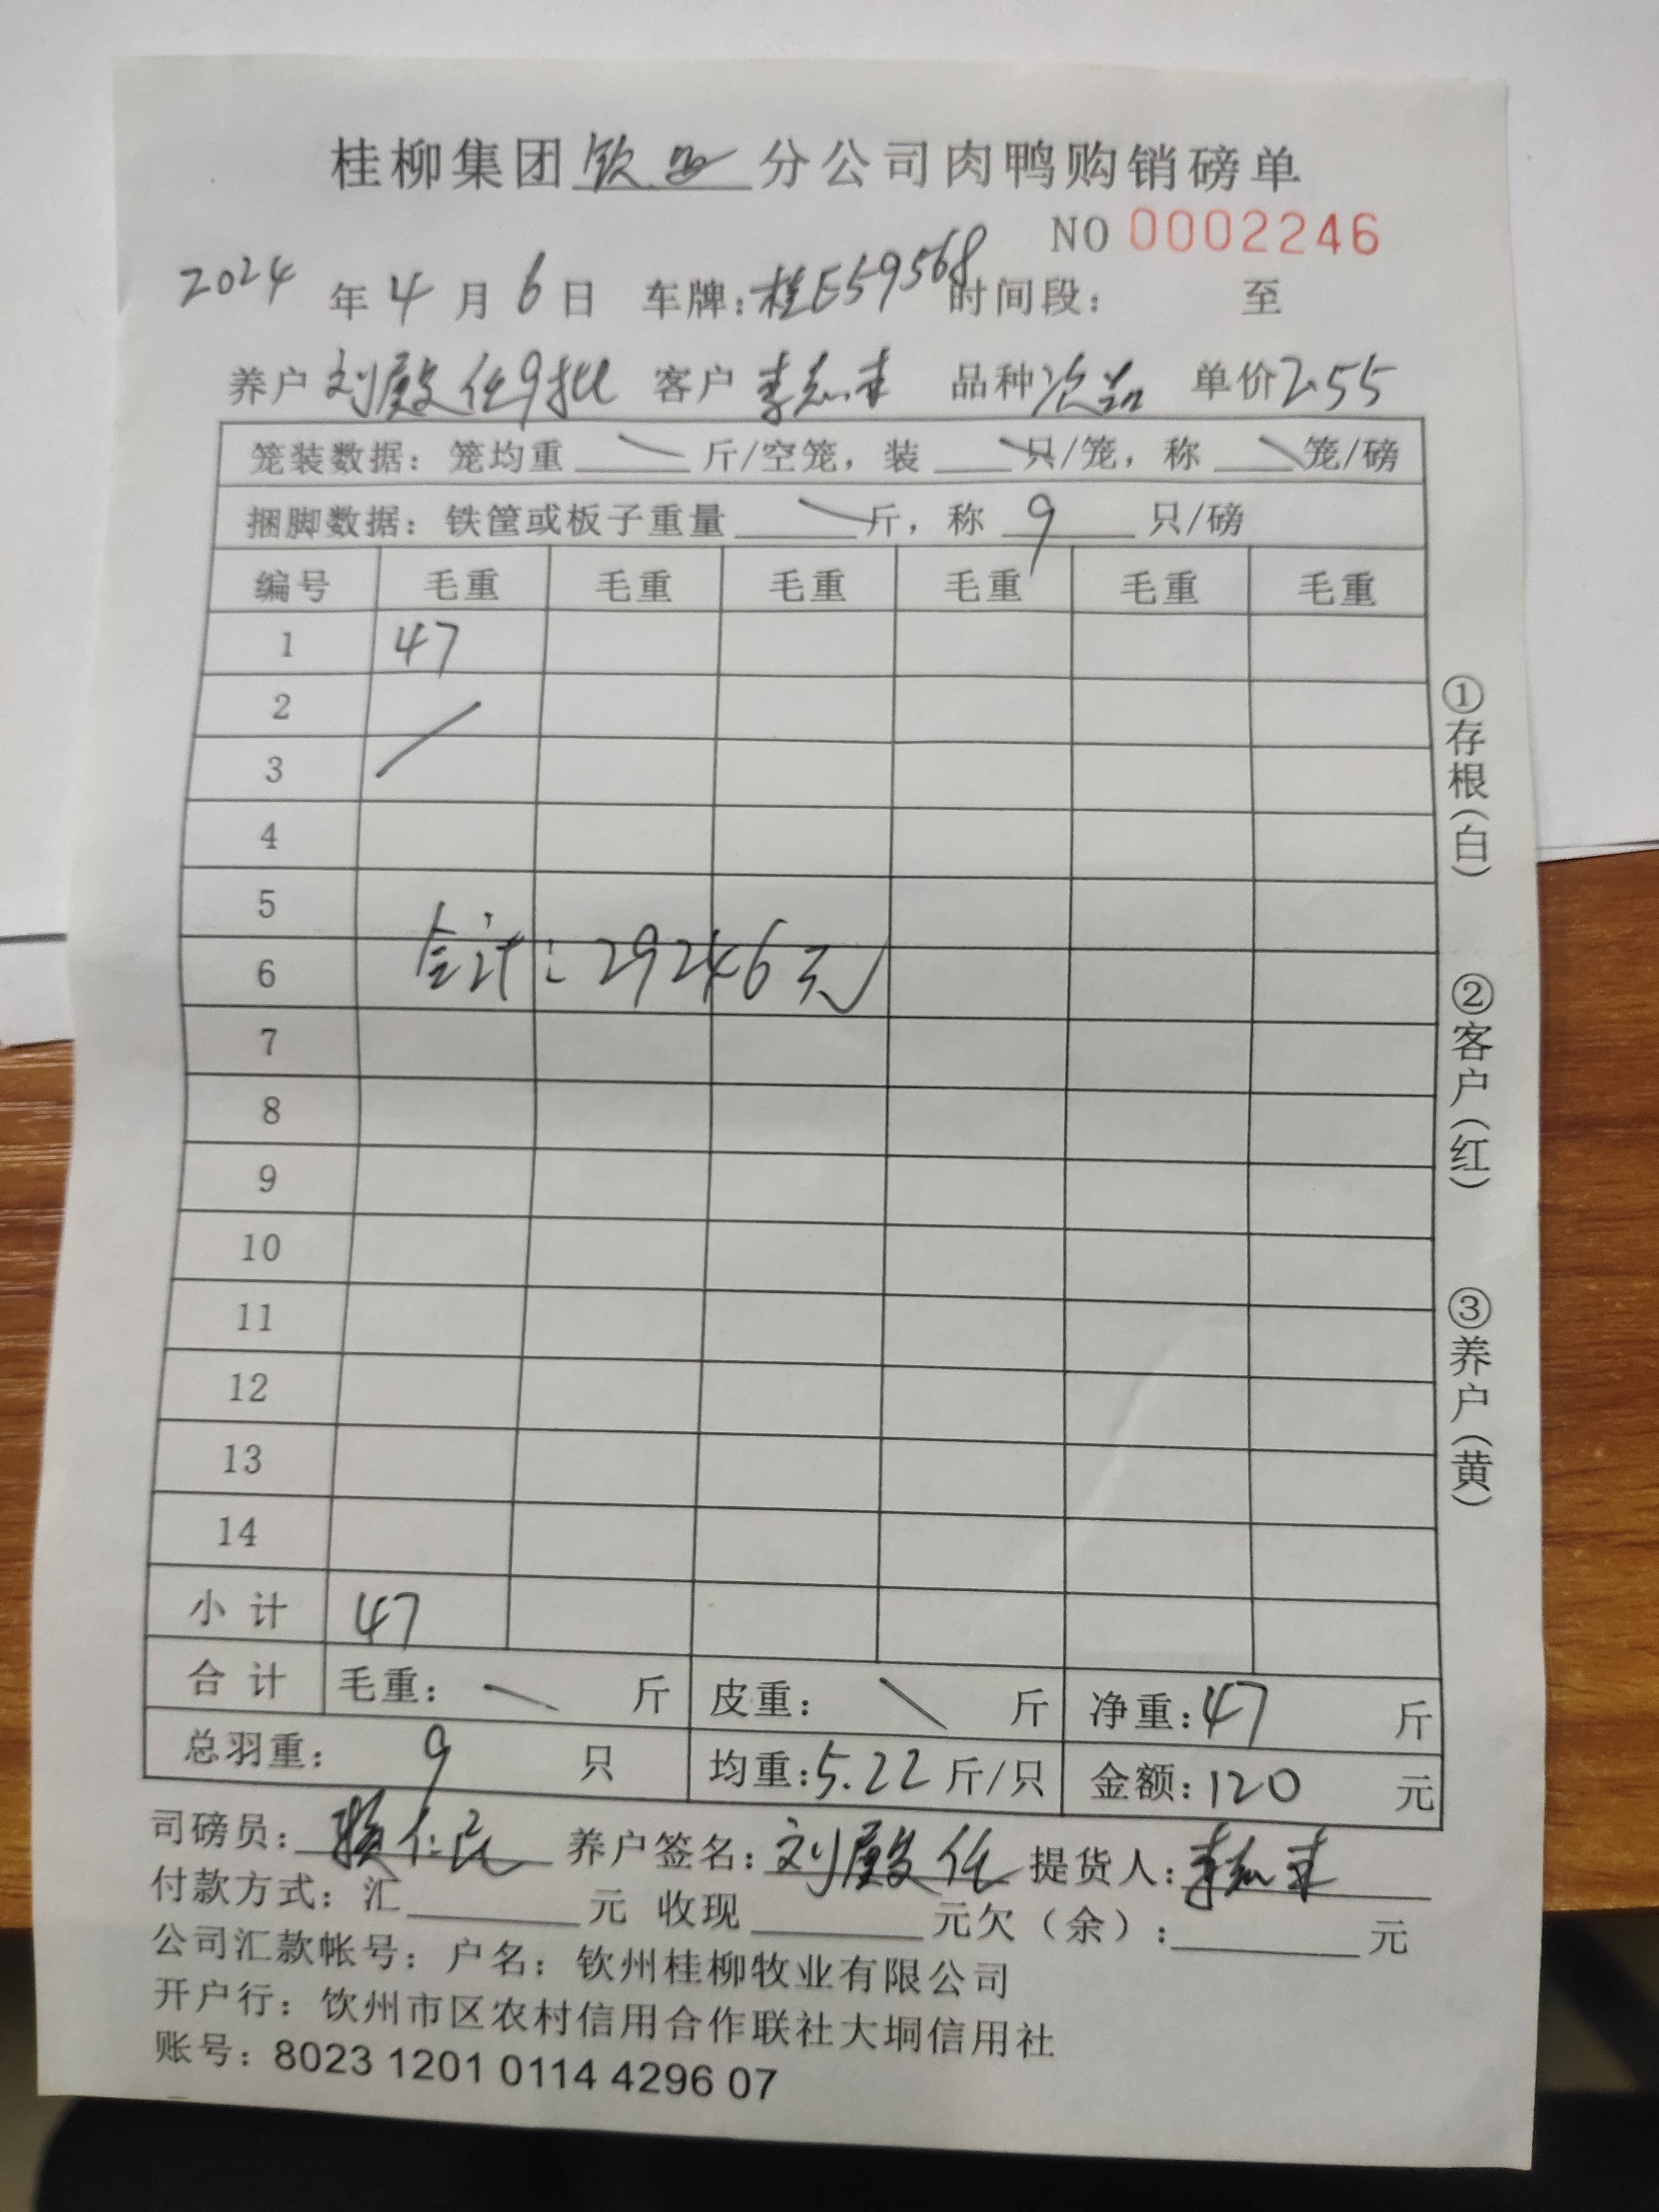 桂柳集团钦 分公司肉鸭购销磅单
NO 0002246
2024 年 4 月 6 日 车牌：桂E59568 时间段： 至
养户 刘殿任9批 客户 李志 品种 次品 单价 2.55
笼装数据：笼均重 斤/空笼，装 只/笼，称 笼/磅
捆脚数据：铁筐或板子重量 斤，称 9 只/磅
编号 毛重 毛重 毛重 毛重 毛重 毛重
1 47
2
3
4
5
合计：29246元
6
7
8
9
10
11
12
13
14
小计 47
合计 毛重： 斤 皮重： 斤 净重：47 斤
总羽重： 9 只 均重：5.22 斤/只 金额：120 元
司磅员： 养户签名：刘殿任 提货人：李志
付款方式：汇 元 收现 元欠（余）： 元
公司汇款帐号：户名：钦州桂柳牧业有限公司
开户行：钦州市区农村信用合作联社大垌信用社
账号：8023 1201 0114 4296 07
①存根（白）
②客户（红）
③养户（黄）